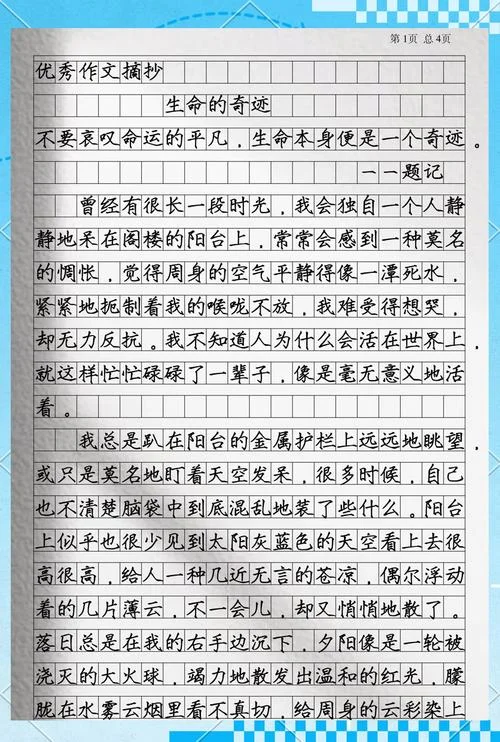 第1页 总4页
优秀作文摘抄
生命的奇迹
不要哀叹命运的平凡，生命本身便是一个奇迹。
——题记
曾经有很长一段时光，我会独自一个人静
静地呆在阁楼的阳台上，常常会感到一种莫名
的惆怅，觉得周身的空气平静得像一潭死水，
紧紧地扼制着我的喉咙不放，我难受得想哭，
却无力反抗。我不知道人为什么会活在世界上，
就这样忙忙碌碌了一辈子，像是毫无意义地活
着。
我总是趴在阳台的金属护栏上远远地眺望，
或只是莫名地盯着天空发呆，很多时候，自己
也不清楚脑袋中到底混乱地装了些什么。阳台
上似乎也很少见到太阳灰蓝色的天空看上去很
高很高，给人一种几近无言的苍凉，偶尔浮动
着的几片薄云，不一会儿，却又悄悄地散了。
落日总是在我的右手边沉下，夕阳像是一轮被
浇灭的大火球，竭力地散发出温和的红光，朦
胧在水雾云烟里看不真切，给周身的云彩染上